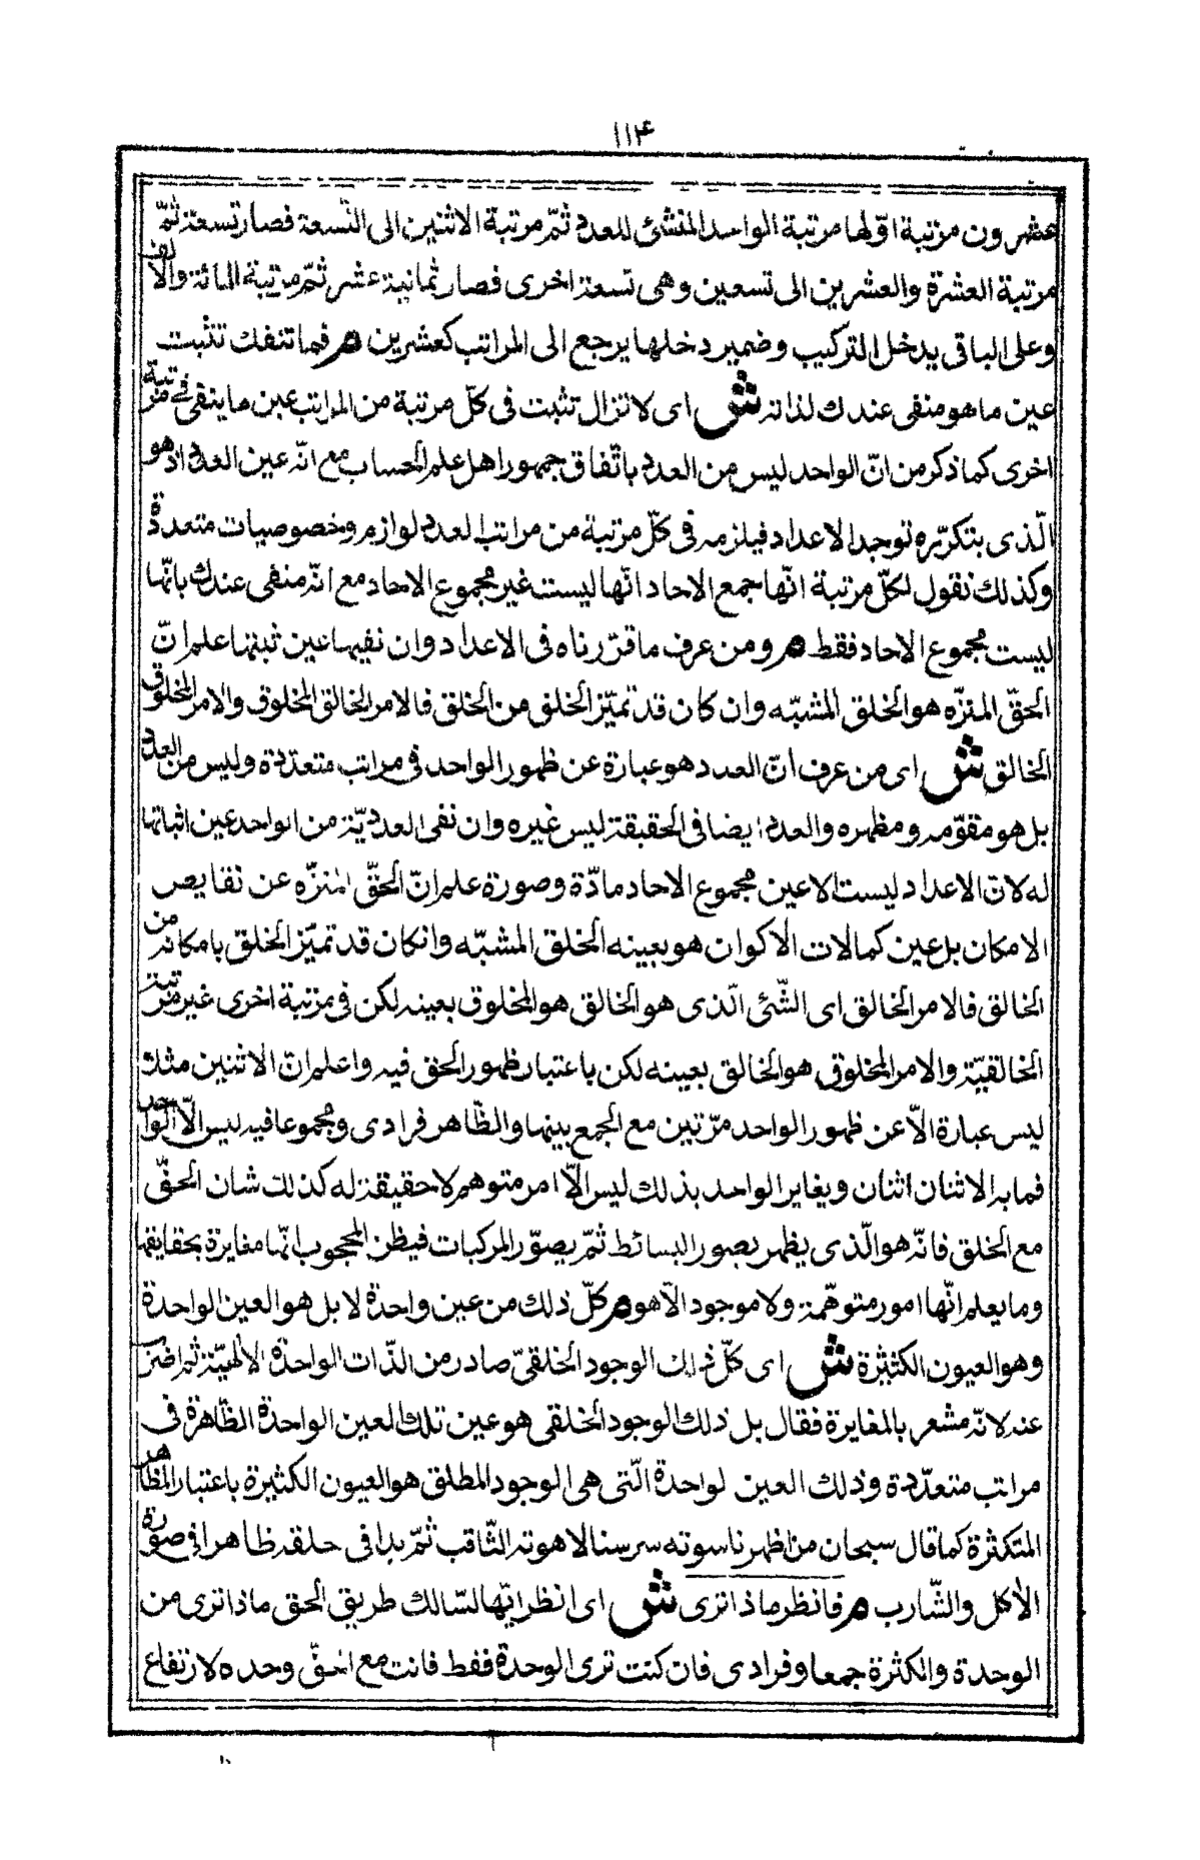 ١١۴
عشرون مرتبة اوّلها مرتبة الواحد المنشئ للعدد ثمّ مرتبة الاثنين الى التّسعة فصار تسعة ثمّ
مرتبة العشرة والعشرين الى تسعين وهى تسعة اخرى فصار ثمانية عشر ثمّ مرتبة المائة والالف
وعلى الباقى يدخل التركيب وضمير دخلها يرجع الى المراتب كعشرين م فما تنفك تثبت
عين ما هو منفى عندك لذاته ش اى لا تزال تثبت فى كلّ مرتبة من المراتب عين ما ينفى فى مرتبة
اخرى كما ذكر من انّ الواحد ليس من العدد باتّفاق جمهور اهل علم الحساب مع انّه عين العدد اذ هو
الّذى بتكرّره توجد الاعداد فيلزمه فى كلّ مرتبة من مراتب العدد لوازم وخصوصيات متعددة
وكذلك نقول لكلّ مرتبة انّها جمع الاحاد انّها ليست غير مجموع الاحاد مع انّه منفى عندك بانّها
ليست مجموع الاحاد فقط م ومن عرف ما قرّرناه فى الاعداد وان نفيها عين ثبتها علم انّ
الحقّ المنزّه هو الخلق المشبّه وان كان قد تميّز الخلق من الخلق فالامر الخالق المخلوق والامر المخلوق
الخالق ش اى من عرف انّ العدد هو عبارة عن ظهور الواحد فى مراتب متعدّدة وليس من العدد
بل هو مقوّمه ومظهره والعدد ايضا فى الحقيقة ليس غيره وان نفى العدديّة من الواحد عين اثباتها
له لانّ الاعداد ليست الا عين مجموع الاحاد مادّة وصورة علم انّ الحقّ المنزّه عن نقايص
الامكان بل عين كمالات الاكوان هو بعينه الخلق المشبّه وانكان قد تميّز الخلق بامكانه من
الخالق فالامر الخالق اى الشّئ الّذى هو الخالق هو المخلوق بعينه لكن فى مرتبة اخرى غير مرتبة
الخالقيّة والامر المخلوق هو الخالق بعينه لكن باعتبار ظهور الحق فيه واعلم انّ الاثنين مثلا
ليس عبارة الّا عن ظهور الواحد مرّتين مع الجمع بينهما والظّاهر فرادى ومجموعا فيه ليس الّا الواحد
فما به الاثنان اثنان ويغاير الواحد بذلك ليس الّا امر متوهم لا حقيقة له كذلك شان الحقّ
مع الخلق فانّه هو الّذى يظهر بصور البسائط ثمّ بصوّر المركبات فيظن المحجوب انّها مغايرة بحقايقها
وما يعلم انّها امور متوهّمة ولا موجود الّا هو م كلّ ذلك من عين واحدة لا بل هو العين الواحدة
وهو العيون الكثيرة ش اى كلّ ذلك الوجود الخلقىّ صادر من الذّات الواحدة الالهيّة ثم اضرب
عنه لانّه مشعر بالمغايرة فقال بل ذلك الوجود الخلقى هو عين تلك العين الواحدة الظّاهرة فى
مراتب متعدّدة وذلك العين لواحدة الّتى هى الوجود المطلق هو العيون الكثيرة باعتبار المظاهر
المتكثرة كما قال سبحان من اظهر ناسوته سر سنا لاهوته الثّاقب ثمّ بدا فى خلقه ظاهرا فى صورة
الأكل والشّارب م فانظر ماذا ترى ش اى انظر ايّها السّالك طريق الحق ماذا ترى من
الوحدة والكثرة جمعا وفرادى فان كنت ترى الوحدة فقط فانت مع الحقّ وحده لارتفاع